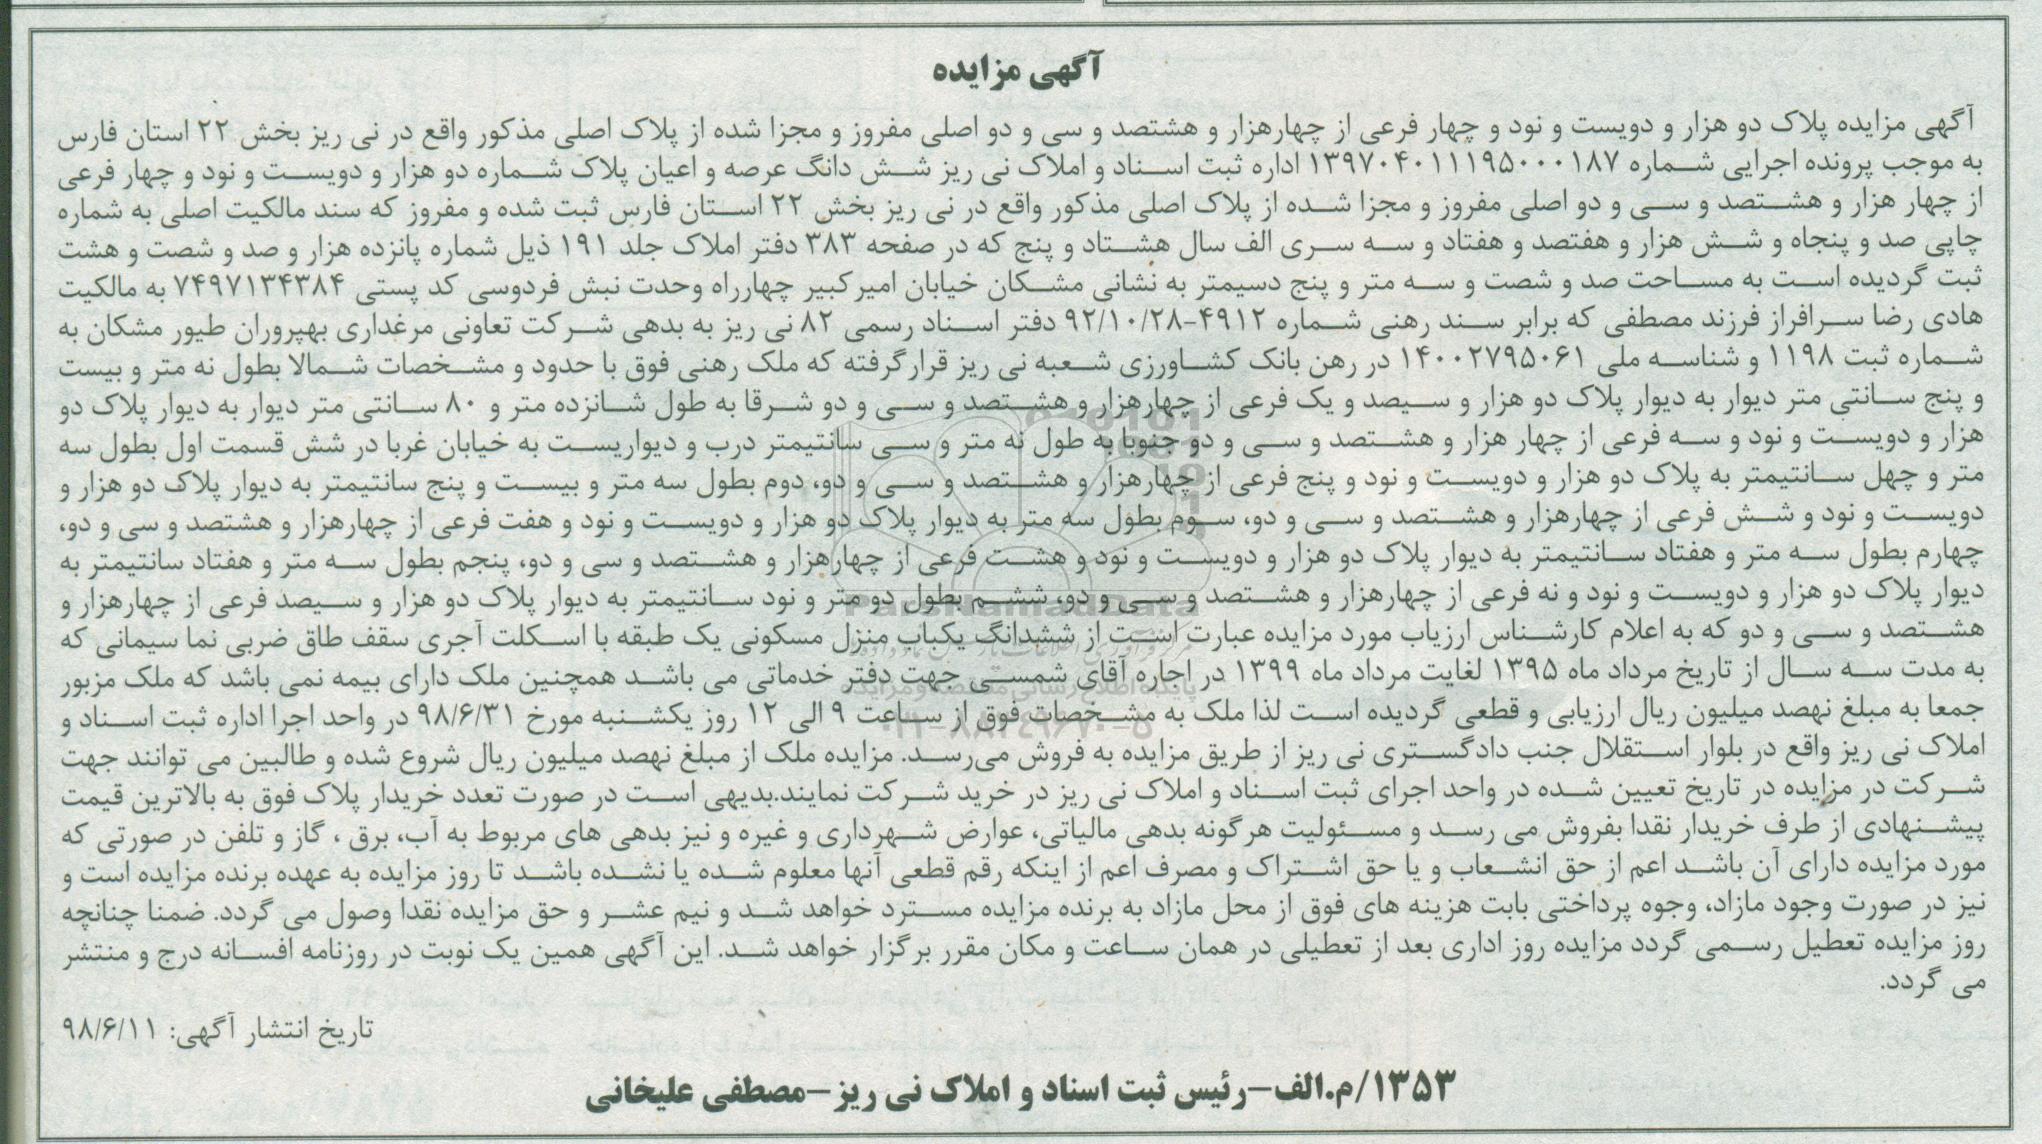 آگهی مزایده
آگهی مزایده پلاک دو هزار و دویست و نود و چهار فرعی از چهارهزار و هشتصد و سی و دو اصلی مفروز و مجزا شده از پلاک اصلی مذکور واقع در نی ریز بخش ۲۲ استان فارس
به موجب پرونده اجرایی شماره ۱۳۹۷۰۴۰۱۱۱۹۵۰۰۰۱۸۷ اداره ثبت اسناد و املاک نی ریز شش دانگ عرصه و اعیان پلاک شماره دو هزار و دویست و نود و چهار فرعی
از چهار هزار و هشتصد و سی و دو اصلی مفروز و مجزا شده از پلاک اصلی مذکور واقع در نی ریز بخش ۲۲ استان فارس ثبت شده و مفروز که سند مالکیت اصلی به شماره
چاپی صد و پنجاه و شش هزار و هفتصد و هفتاد و سه سری الف سال هشتاد و پنج که در صفحه ۳۸۳ دفتر املاک جلد ۱۹۱ ذیل شماره پانزده هزار و صد و شصت و هشت
ثبت گردیده است به مساحت صد و شصت و سه متر و پنج دسیمتر به نشانی مشکان خیابان امیرکبیر چهارراه وحدت نبش فردوسی کد پستی ۷۴۹۷۱۳۴۳۸۴ به مالکیت
هادی رضا سرافراز فرزند مصطفی که برابر سند رهنی شماره ۴۹۱۲-۹۲/۱۰/۲۸ دفتر اسناد رسمی ۸۲ نی ریز به بدهی شرکت تعاونی مرغداری بهپروران طیور مشکان به
شماره ثبت ۱۱۹۸ و شناسه ملی ۱۴۰۰۲۷۹۵۰۶۱ در رهن بانک کشاورزی شعبه نی ریز قرارگرفته که ملک رهنی فوق با حدود و مشخصات شمالا بطول نه متر و بیست
و پنج سانتی متر دیوار به دیوار پلاک دو هزار و سیصد و یک فرعی از چهارهزار و هشتصد و سی و دو شرقا به طول شانزده متر و ۸۰ سانتی متر دیوار به دیوار پلاک دو
هزار و دویست و نود و سه فرعی از چهار هزار و هشتصد و سی و دو جنوبا به طول نه متر و سی سانتیمتر درب و دیواریست به خیابان غربا در شش قسمت اول بطول سه
متر و چهل سانتیمتر به پلاک دو هزار و دویست و نود و پنج فرعی از چهارهزار و هشتصد و سی و دو، دوم بطول سه متر و بیست و پنج سانتیمتر به دیوار پلاک دو هزار و
دویست و نود و شش فرعی از چهارهزار و هشتصد و سی و دو، سوم بطول سه متر به دیوار پلاک دو هزار و دویست و نود و هفت فرعی از چهارهزار و هشتصد و سی و دو،
چهارم بطول سه متر و هفتاد سانتیمتر به دیوار پلاک دو هزار و دویست و نود و هشت فرعی از چهارهزار و هشتصد و سی و دو، پنجم بطول سه متر و هفتاد سانتیمتر به
دیوار پلاک دو هزار و دویست و نود و نه فرعی از چهارهزار و هشتصد و سی و دو، ششم بطول دو متر و نود سانتیمتر به دیوار پلاک دو هزار و سیصد فرعی از چهارهزار و
هشتصد و سی و دو که به اعلام کارشناس ارزیاب مورد مزایده عبارت است از ششدانگ یکباب منزل مسکونی یک طبقه با اسکلت آجری سقف طاق ضربی نما سیمانی که
به مدت سه سال از تاریخ مرداد ماه ۱۳۹۵ لغایت مرداد ماه ۱۳۹۹ در اجاره آقای شمسی جهت دفتر خدماتی می باشد همچنین ملک دارای بیمه نمی باشد که ملک مزبور
جمعا به مبلغ نهصد میلیون ریال ارزیابی و قطعی گردیده است لذا ملک به مشخصات فوق از ساعت ۹ الی ۱۲ روز یکشنبه مورخ ۹۸/۶/۳۱ در واحد اجرا اداره ثبت اسناد و
املاک نی ریز واقع در بلوار استقلال جنب دادگستری نی ریز از طریق مزایده به فروش می‌رسد. مزایده ملک از مبلغ نهصد میلیون ریال شروع شده و طالبین می توانند جهت
شرکت در مزایده در تاریخ تعیین شده در واحد اجرای ثبت اسناد و املاک نی ریز در خرید شرکت نمایند.بدیهی است در صورت تعدد خریدار پلاک فوق به بالاترین قیمت
پیشنهادی از طرف خریدار نقدا بفروش می رسد و مسئولیت هرگونه بدهی مالیاتی، عوارض شهرداری و غیره و نیز بدهی های مربوط به آب، برق ، گاز و تلفن در صورتی که
مورد مزایده دارای آن باشد اعم از حق انشعاب و یا حق اشتراک و مصرف اعم از اینکه رقم قطعی آنها معلوم شده یا نشده باشد تا روز مزایده به عهده برنده مزایده است و
نیز در صورت وجود مازاد، وجوه پرداختی بابت هزینه های فوق از محل مازاد به برنده مزایده مسترد خواهد شد و نیم عشر و حق مزایده نقدا وصول می گردد. ضمنا چنانچه
روز مزایده تعطیل رسمی گردد مزایده روز اداری بعد از تعطیلی در همان ساعت و مکان مقرر برگزار خواهد شد. این آگهی همین یک نوبت در روزنامه افسانه درج و منتشر
می گردد.
تاریخ انتشار آگهی: ۹۸/۶/۱۱
۱۳۵۳/م.الف-رئیس ثبت اسناد و املاک نی ریز-مصطفی علیخانی